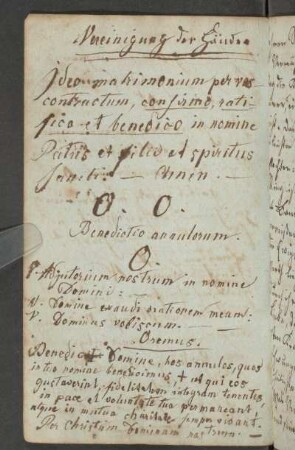 Vereinigung der Hände
Ideo matrimonium per vos
contractum, confirmo, rati-
fico et benedico in nomine
Patris et filii et spiritus
sancti. Amen.
O. O.
Benedictio annulorum.
O.
V. Adjutorium nostrum in nomine
Domini:
V. Domine exaudi orationem meam:
V. Dominus vobiscum.
Oremus.
Benedic Domine, hos annulos, quos
in tuo nomine benedicimus, † ut qui eos
gestaverint, fidelitatem integram tenentes
in pace et voluntate tua permaneant
atque in mutua charitate semper vivant.
Per Christum Dominum nostrum.